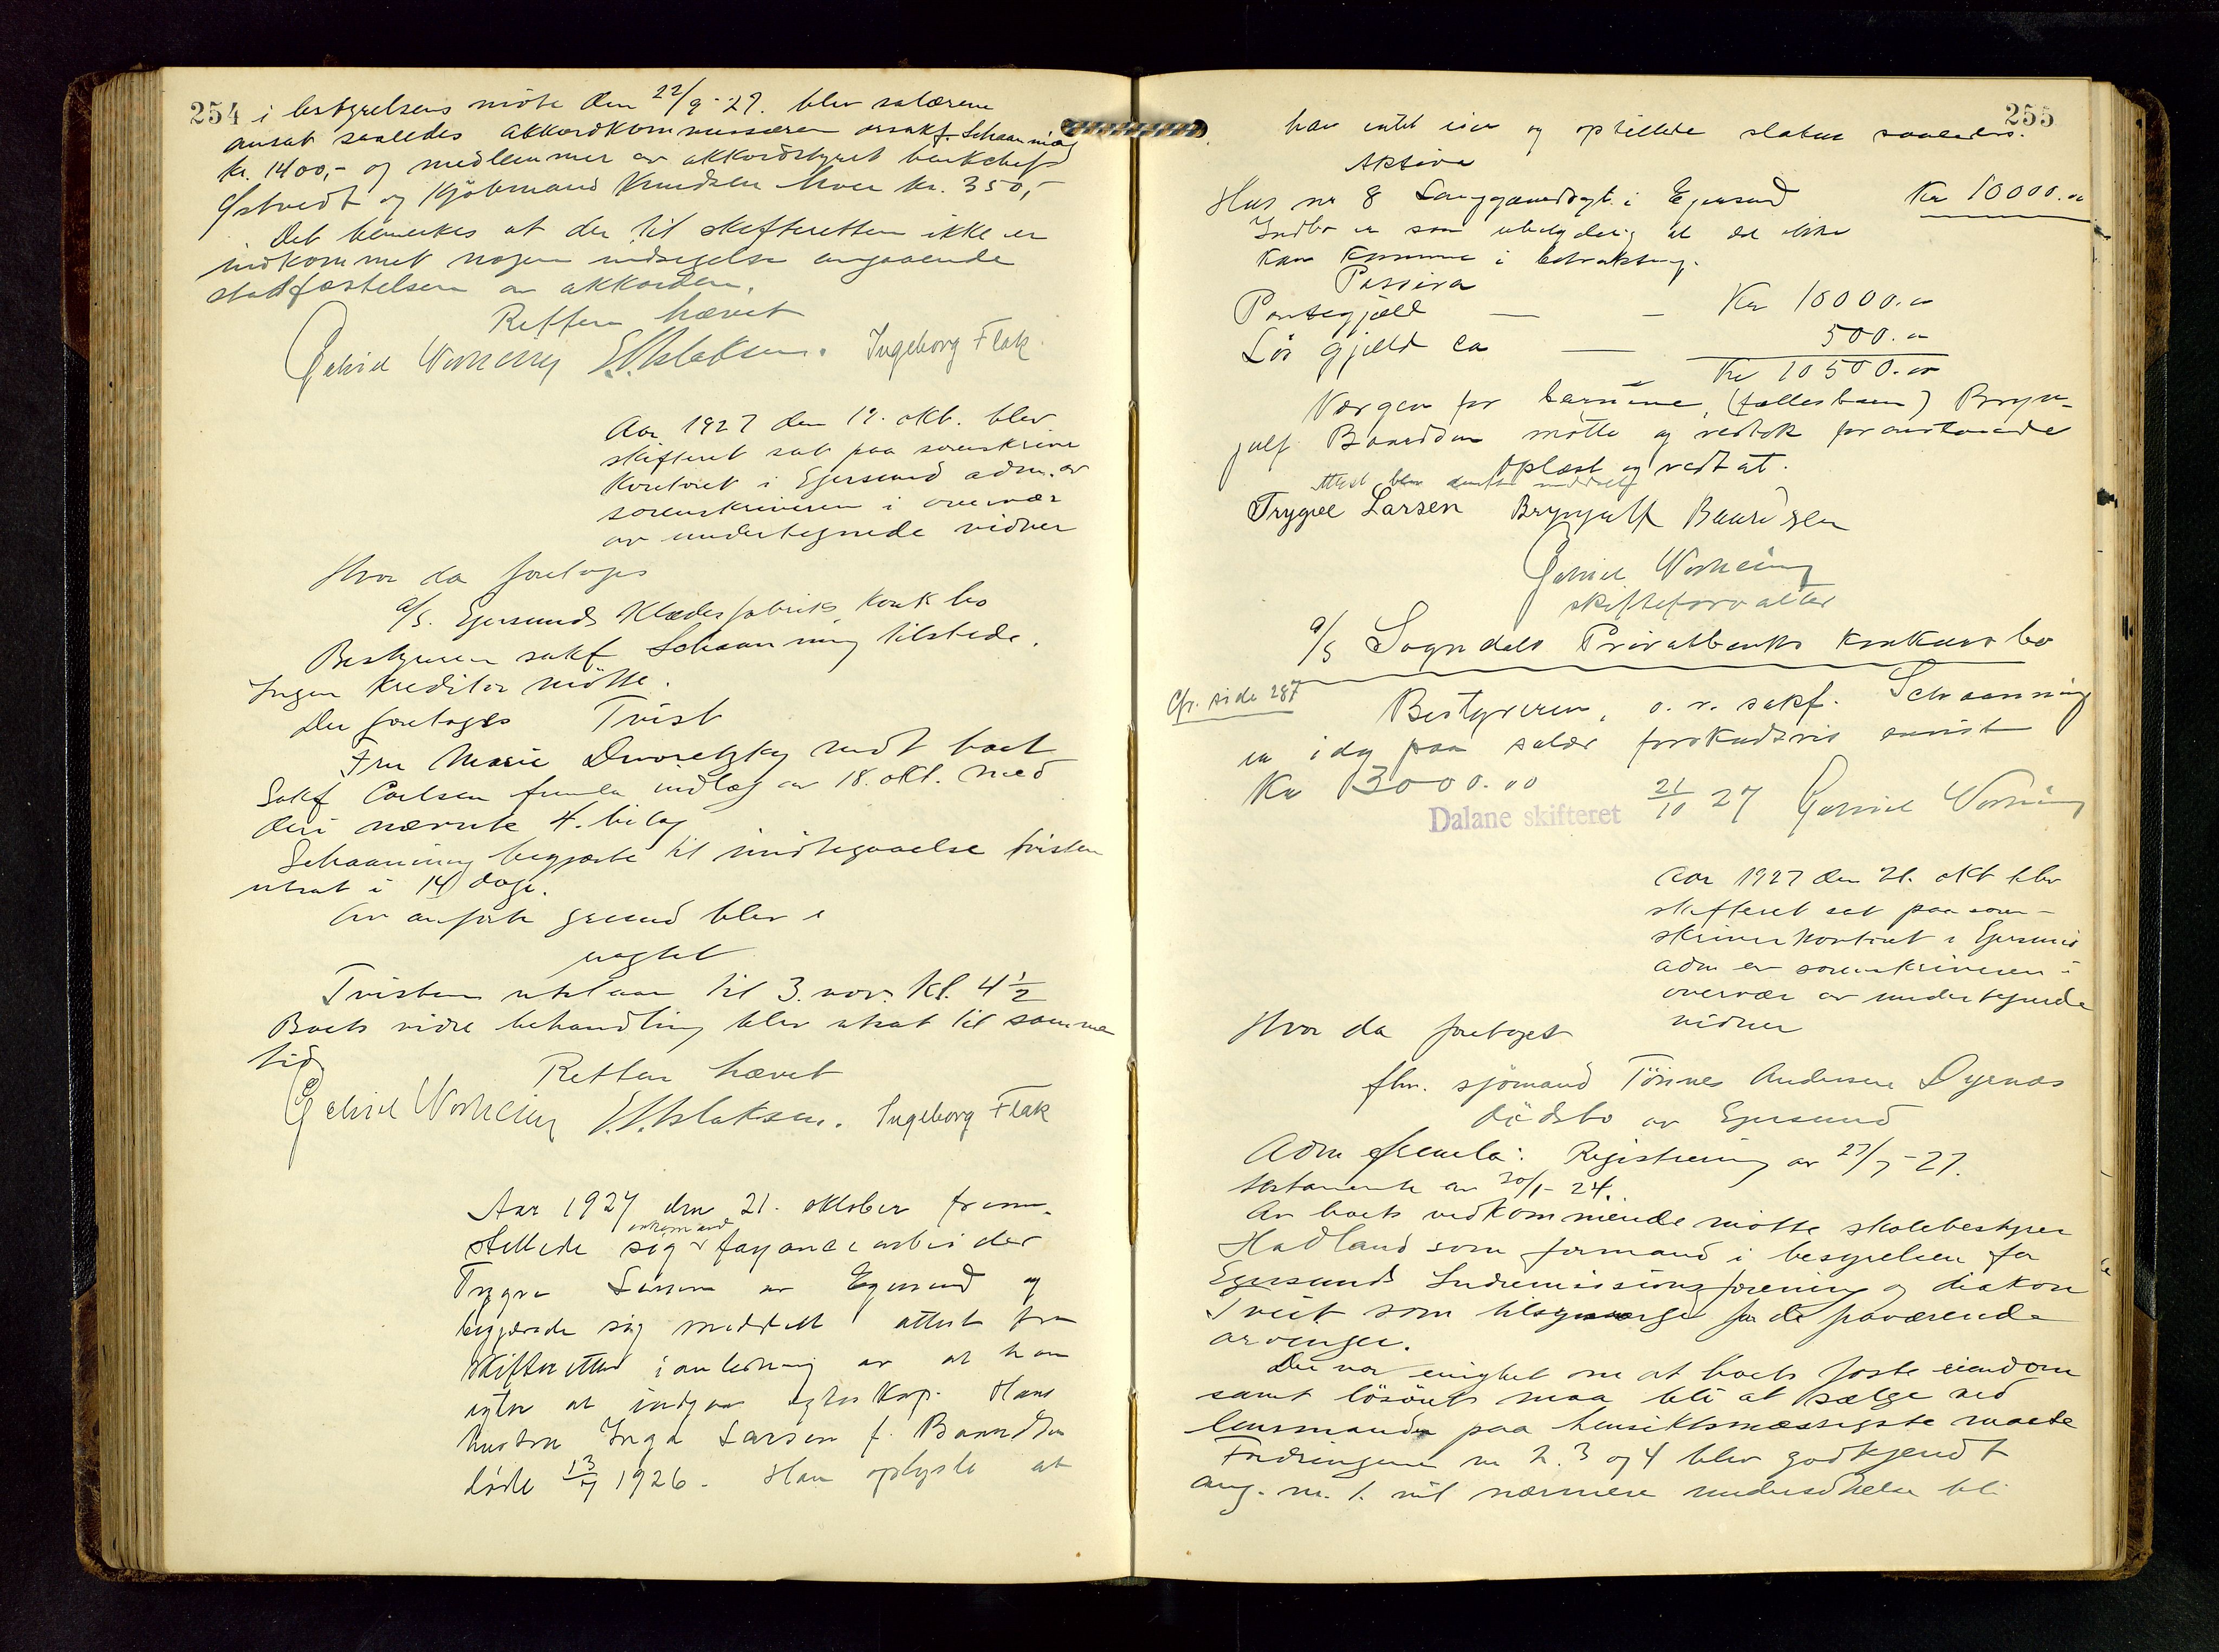 254
i bestyrelsens møte den 22/9-27. blev salærene
ansat saaledes akkordkommissæren orsakf. Schaanning
kr. 1400,- og medlemmer av akkordstyret bankchef
Østvedt og Kjøbmand Knudsen hver kr. 350,-
Det bemerkes at der til skifteretten ikke er
indkommet nogen indsigelse angaaende
stadfæstelsen av akkorden.
Retten hævet
Gabriel Worheim E. Aslaksen. Ingeborg Flak.
Aar 1927 den 19. okt. blev
skifteret sat paa sorenskriver
kontoret i Egersund adm. av
sorenskriveren i overvær
av undertegnede vidner
Hvor da foretoges
A/S. Egersunds Klædesfabriks konk bo
Bestyreren sakf Schaanning tilstede.
Ingen kreditor møtte.
Der foretoges Tvist
Fru Marie Dworetzky mot boet
Sakf Carlsen fremla indlæg av 18. okt. med
deri nævnte 4. bilag
Schaanning begjærte til imøtegaaelse tvisten
utsat i 14 dage.
Av anførte grund blev
eragtet
Tvisten utstaar til 3. nov. kl. 4 1/2
Boets vidre behandling blev utsat til samme
tid
Retten hævet
Gabriel Worheim E. Aslaksen. Ingeborg Flak
Aar 1927 den 21. oktober frem-
stillede sig enkemand fayancearbeider
Trygve Larsen av Egersund og
begjærede sig meddelt attest fra
skifteretten i anledning av at han
agter at indgaa egteskap. Hans
hustru Inga Larsen f. Baardsen
døde 13/7 1926. Han oplyste at
255
han intet eier og opstillede status saaledes.
Aktiva
Hus nr 8 Langgaardsgt. i Egersund Kr 10000.00
Indbo er saa ubetydelig at det ikke
kan komme i betraktning.
Passiva
Pantegjæld — — Kr 10000.00
Løs gjæld ca — 500.00
Kr 10500.00
Værgen for barnene, (fællesbarn) Bryn-
julf Baardsen møtte og vedtok foranstaaende
Oplæst og vedtat.
Attest blev derefter meddelt
Trygve Larsen Brynjulf Baardsen
Gabriel Worheim
skifteforvalter
A/S Sogndals Privatbanks konkursbo
Cfr. side 287
Bestyreren, o. r. sakf. Schaanning
er idag paa salær forskudsvis anvist
Kr 3000.00
Dalane skifteret 21/10 27 Gabriel Worheim
Aar 1927 den 21. okt blev
skifteret sat paa soren-
skriverkontoret i Egersund
adm av sorenskriveren i
overvær av undertegnede
vidner
Hvor da foretoges
fhv. sjömand Tönnes Andersen Dyrnæs
dödsbo av Egersund
Adm fremla: Registrering av 27/7-27.
testamente av 30/1-24.
Av boets vedkommende møtte skolebestyrer
Hadland som formand i bestyrelsen for
Egersunds Indremissionsforening og diakon
Tveit som tilsynsværge for de fraværende
arvinger.
Der var enighet om at boets faste eiendom
samt lösöret maa bli at sælge ved
lensmanden paa hensiktsmæssigste maate
Fordringene nr 2. 3 og 4 blev godkjendt
ang. nr. 1. vil nærmere undersökelse bli